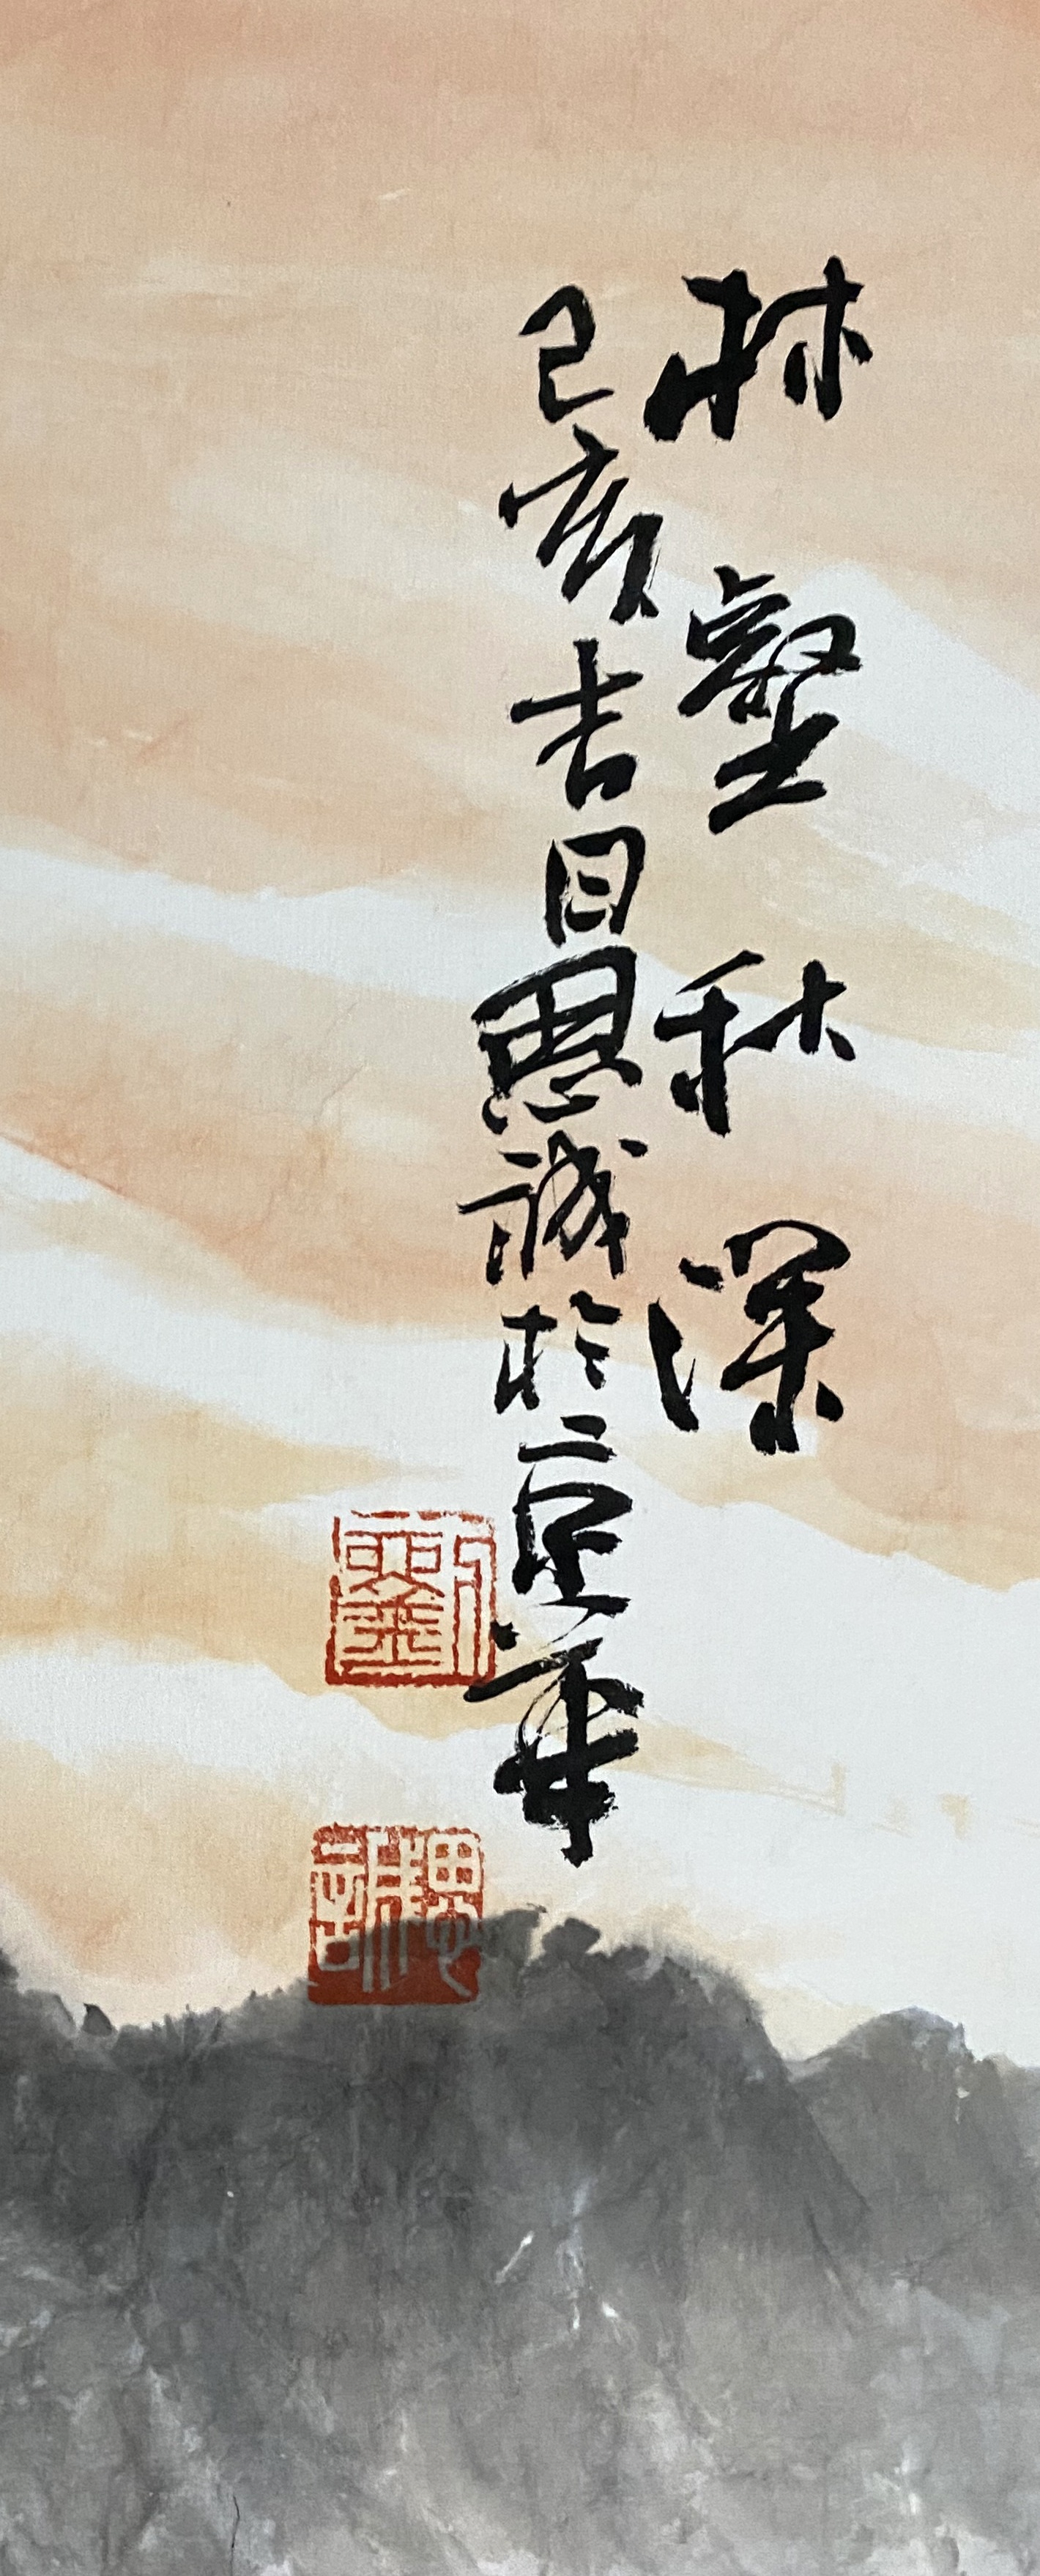 林壑秋深
己亥吉日思誠於京華